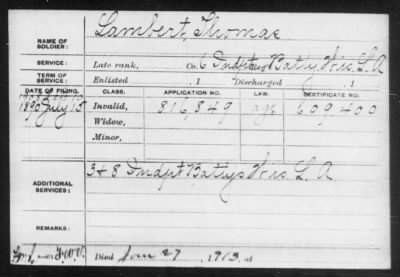 NAME OF SOLDIER: Lambert, Thomas
SERVICE: Late rank, Co. 6 Indpt Reg't Batty Wis. L. A
TERM OF SERVICE: Enlisted , 1 Discharged , 1
DATE OF FILING. CLASS. APPLICATION NO. LAW. CERTIFICATE NO.
1890 July 15 Invalid, 816,849 609,400
Widow,
Minor,
ADDITIONAL SERVICES: 3 & 8 Indpt Battys Wis. L. A
REMARKS:
Died Jan 27, 1913, at